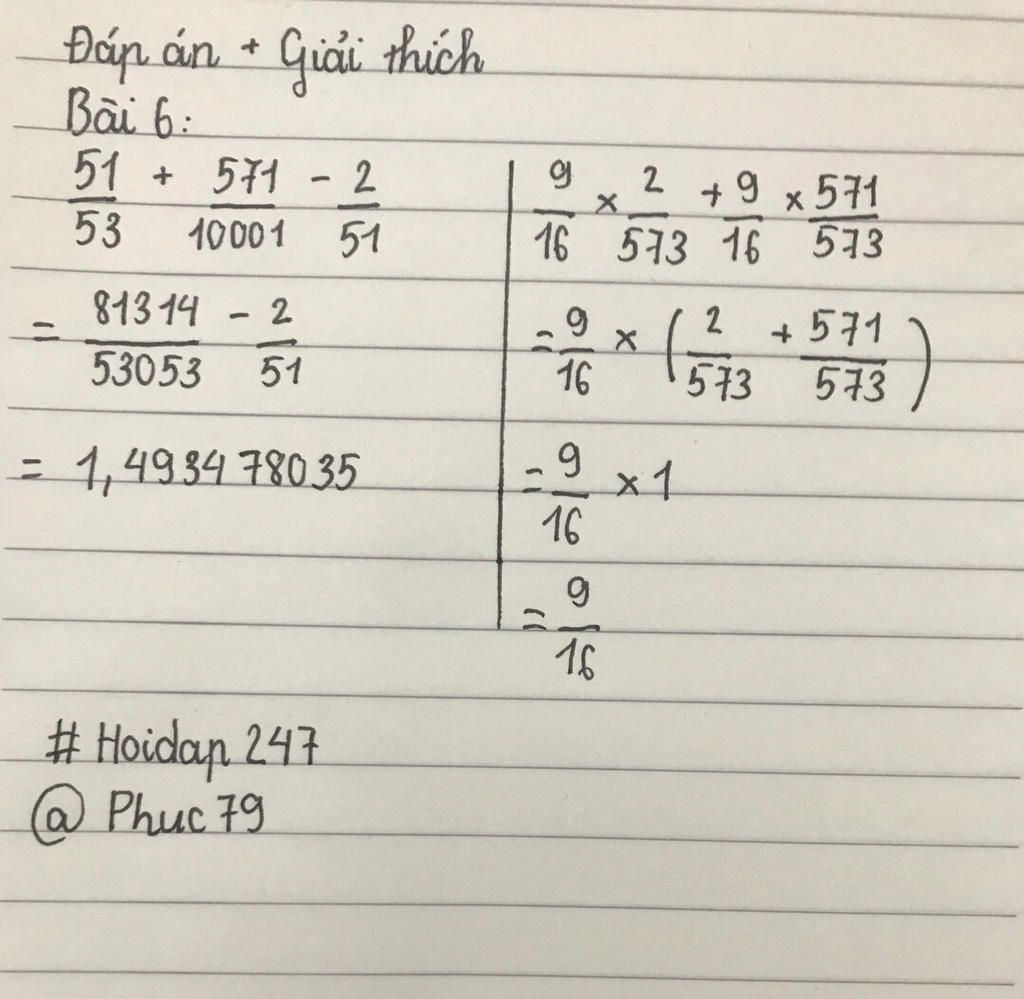 Đáp án + Giải thích
Bài 6:
51/53 + 571/10001 - 2/51
= 81314/53053 - 2/51
= 1,493478035
9/16 × 2/573 + 9/16 × 571/573
= 9/16 × (2/573 + 571/573)
= 9/16 × 1
= 9/16
# Hoidap 247
@ Phuc79